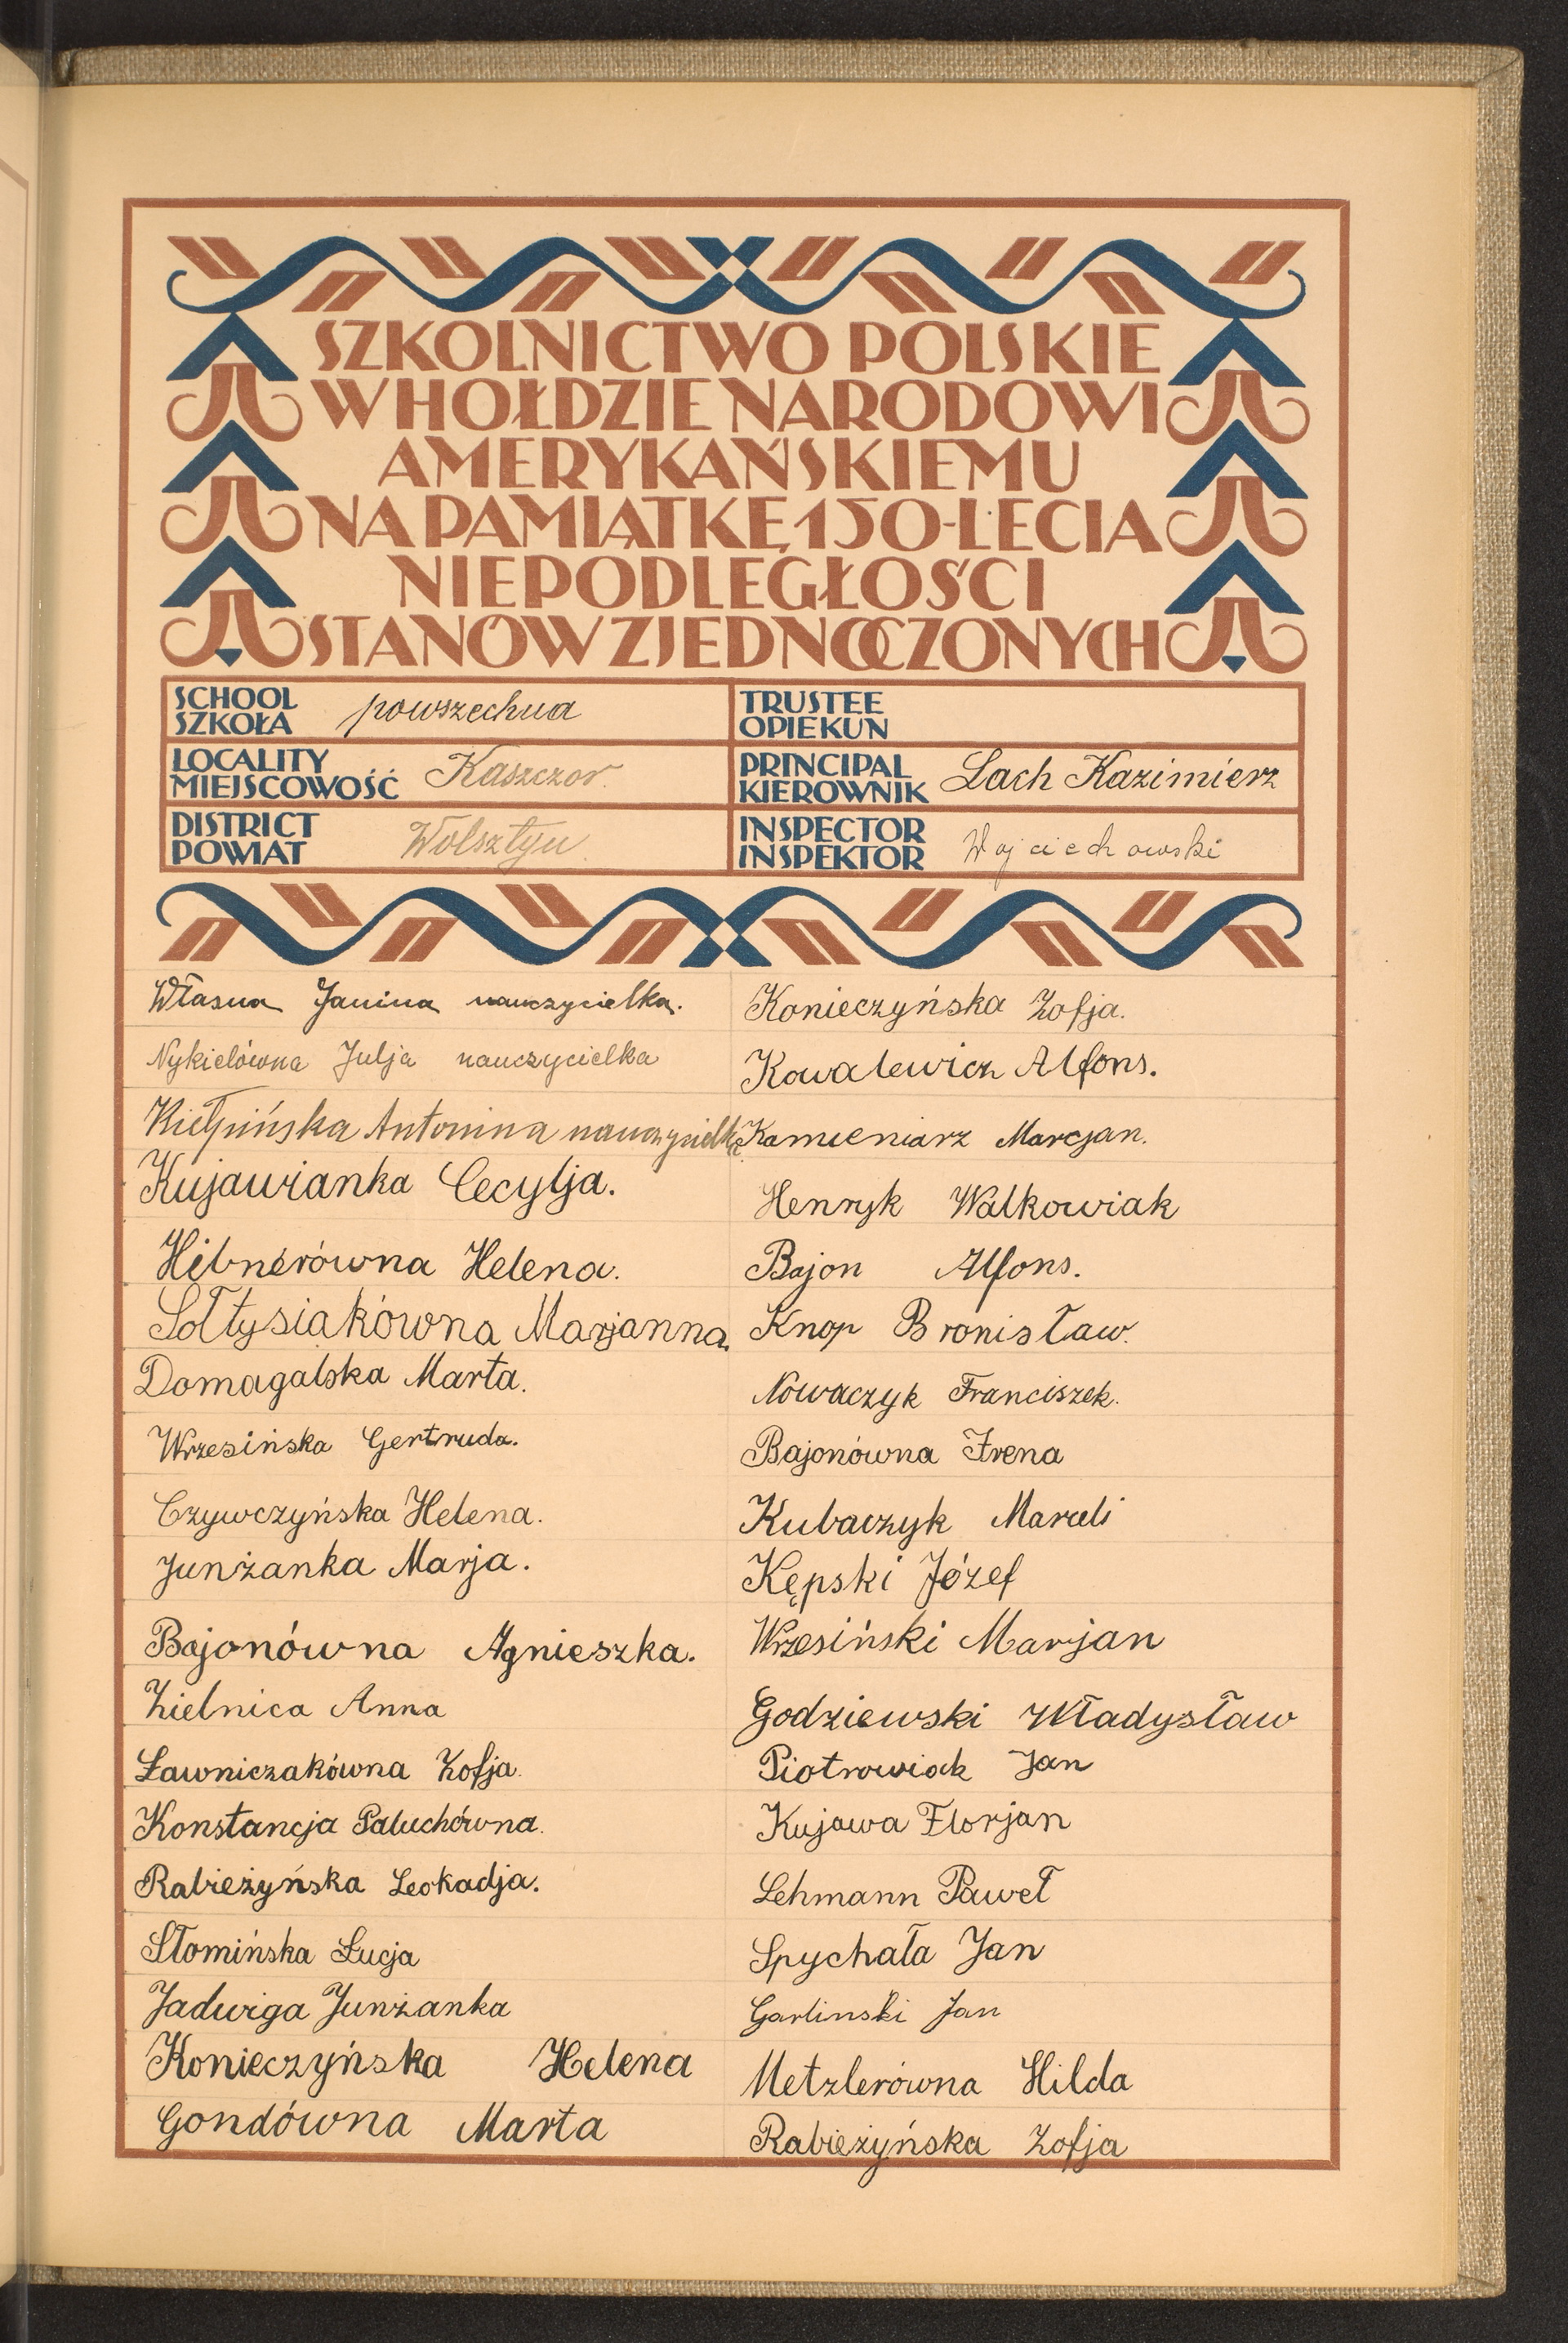 SZKOLNICTWO POLSKIE
W HOŁDZIE NARODOWI
AMERYKAŃSKIEMU
NA PAMIĄTKĘ 150-LECIA
NIEPODLEGŁOŚCI
STANÓW ZJEDNOCZONYCH
SCHOOL
SZKOŁA powszechna
TRUSTEE
OPIEKUN
LOCALITY
MIEJSCOWOŚĆ Kaszczor.
PRINCIPAL
KIEROWNIK Lach Kazimierz
DISTRICT
POWIAT Wolsztyn
INSPECTOR
INSPEKTOR Wojciechowski
Własna Janina nauczycielka.
Nykielówna Julja nauczycielka
Kiełpińska Antonina nauczycielka
Kujawianka Cecylja.
Hibnerówna Helena.
Sołtysiakówna Marjanna.
Domagalska Marta.
Wrzesińska Gertruda.
Czywczyńska Helena.
Junżanka Marja.
Bajonówna Agnieszka.
Zielnica Anna
Ławniczakówna Zofja.
Konstancja Paluchówna.
Rabieżyńska Leokadja.
Słomińska Łucja
Jadwiga Junżanka
Konieczyńska Helena
Gondówna Marta
Konieczyńska Zofja.
Kowalewicz Alfons.
Kamieniarz Marcjan.
Henryk Walkowiak
Bajon Alfons.
Knop Bronisław.
Nowaczyk Franciszek.
Bajonówna Irena
Kubaczyk Marceli
Kępski Józef
Wrzesiński Marjan
Godziewski Władysław
Piotrowiak Jan
Kujawa Florjan
Lehmann Paweł
Spychała Jan
Garlinski Jan
Metzlerówna Hilda
Rabieżyńska Zofja